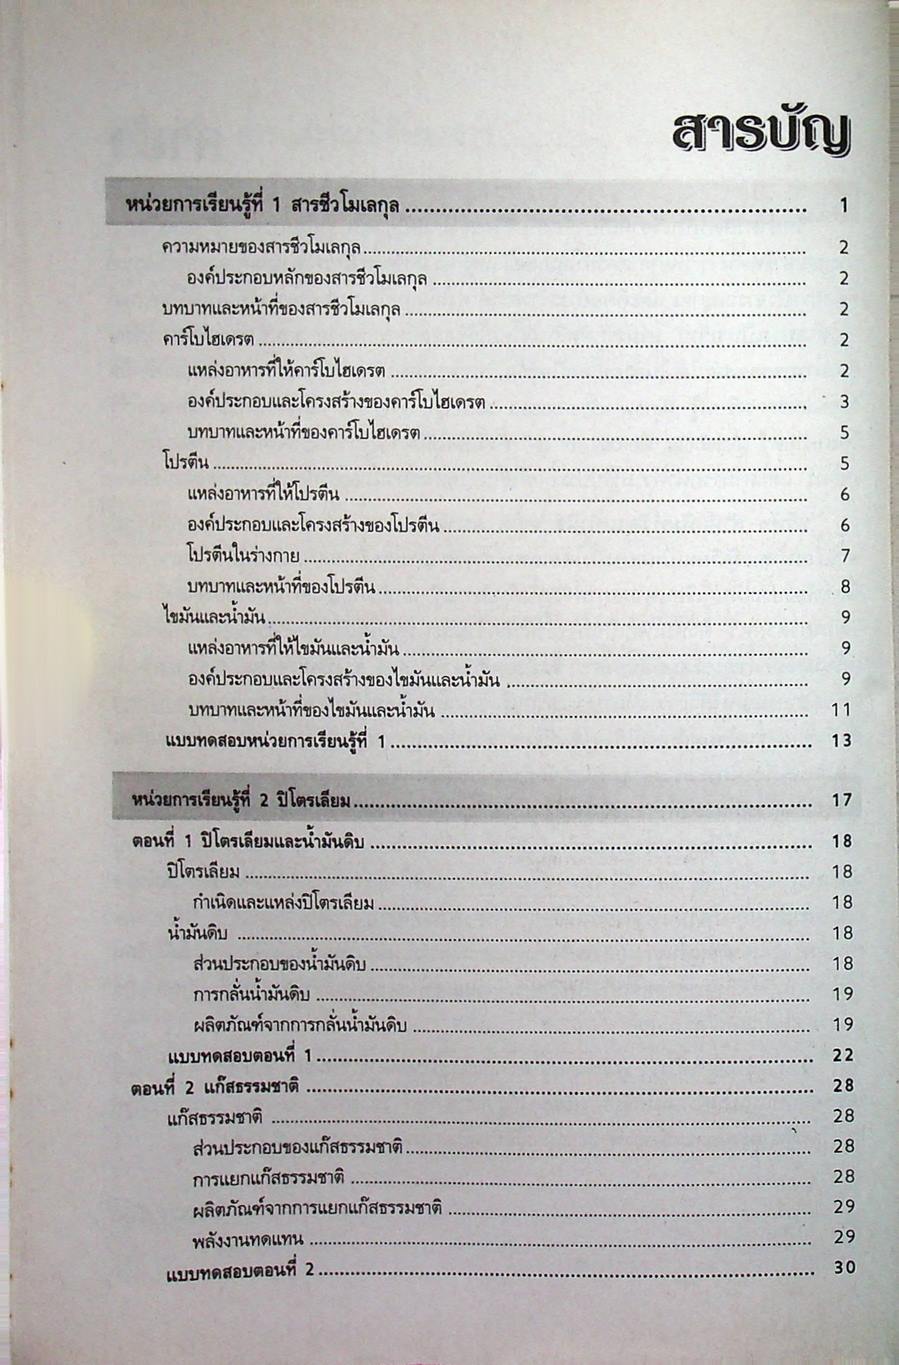 สารบัญ
หน่วยการเรียนรู้ที่ 1 สารชีวโมเลกุล ........................................ 1
ความหมายของสารชีวโมเลกุล ........................................ 2
องค์ประกอบหลักของสารชีวโมเลกุล ........................................ 2
บทบาทและหน้าที่ของสารชีวโมเลกุล ........................................ 2
คาร์โบไฮเดรต ........................................ 2
แหล่งอาหารที่ให้คาร์โบไฮเดรต ........................................ 2
องค์ประกอบและโครงสร้างของคาร์โบไฮเดรต ........................................ 3
บทบาทและหน้าที่ของคาร์โบไฮเดรต ........................................ 5
โปรตีน ........................................ 5
แหล่งอาหารที่ให้โปรตีน ........................................ 6
องค์ประกอบและโครงสร้างของโปรตีน ........................................ 6
โปรตีนในร่างกาย ........................................ 7
บทบาทและหน้าที่ของโปรตีน ........................................ 8
ไขมันและน้ำมัน ........................................ 9
แหล่งอาหารที่ให้ไขมันและน้ำมัน ........................................ 9
องค์ประกอบและโครงสร้างของไขมันและน้ำมัน ........................................ 9
บทบาทและหน้าที่ของไขมันและน้ำมัน ........................................ 11
แบบทดสอบหน่วยการเรียนรู้ที่ 1 ........................................ 13
หน่วยการเรียนรู้ที่ 2 ปิโตรเลียม ........................................ 17
ตอนที่ 1 ปิโตรเลียมและน้ำมันดิบ ........................................ 18
ปิโตรเลียม ........................................ 18
กำเนิดและแหล่งปิโตรเลียม ........................................ 18
น้ำมันดิบ ........................................ 18
ส่วนประกอบของน้ำมันดิบ ........................................ 18
การกลั่นน้ำมันดิบ ........................................ 19
ผลิตภัณฑ์จากการกลั่นน้ำมันดิบ ........................................ 19
แบบทดสอบตอนที่ 1 ........................................ 22
ตอนที่ 2 แก๊สธรรมชาติ ........................................ 28
แก๊สธรรมชาติ ........................................ 28
ส่วนประกอบของแก๊สธรรมชาติ ........................................ 28
การแยกแก๊สธรรมชาติ ........................................ 28
ผลิตภัณฑ์จากการแยกแก๊สธรรมชาติ ........................................ 29
พลังงานทดแทน ........................................ 29
แบบทดสอบตอนที่ 2 ........................................ 30